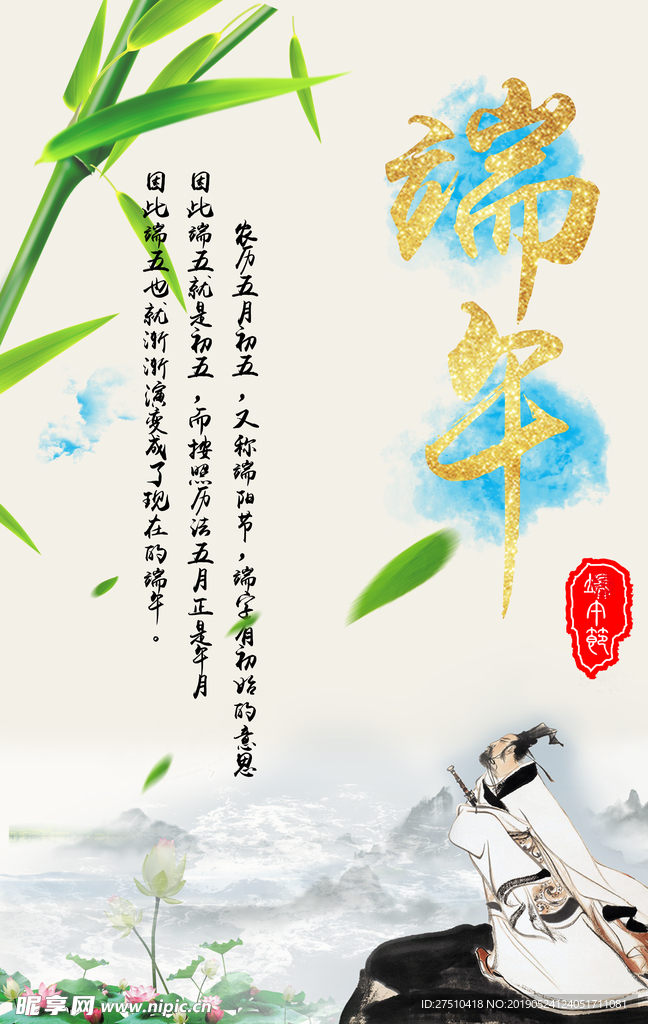 端午
端午節
农历五月初五，又称端阳节，端字有初始的意思
因此端五就是初五，而按照历法五月正是午月
因此端五也就渐渐演变成了现在的端午。
昵享网 www.nipic.cn
ID:27510418 NO:20190524124051711081